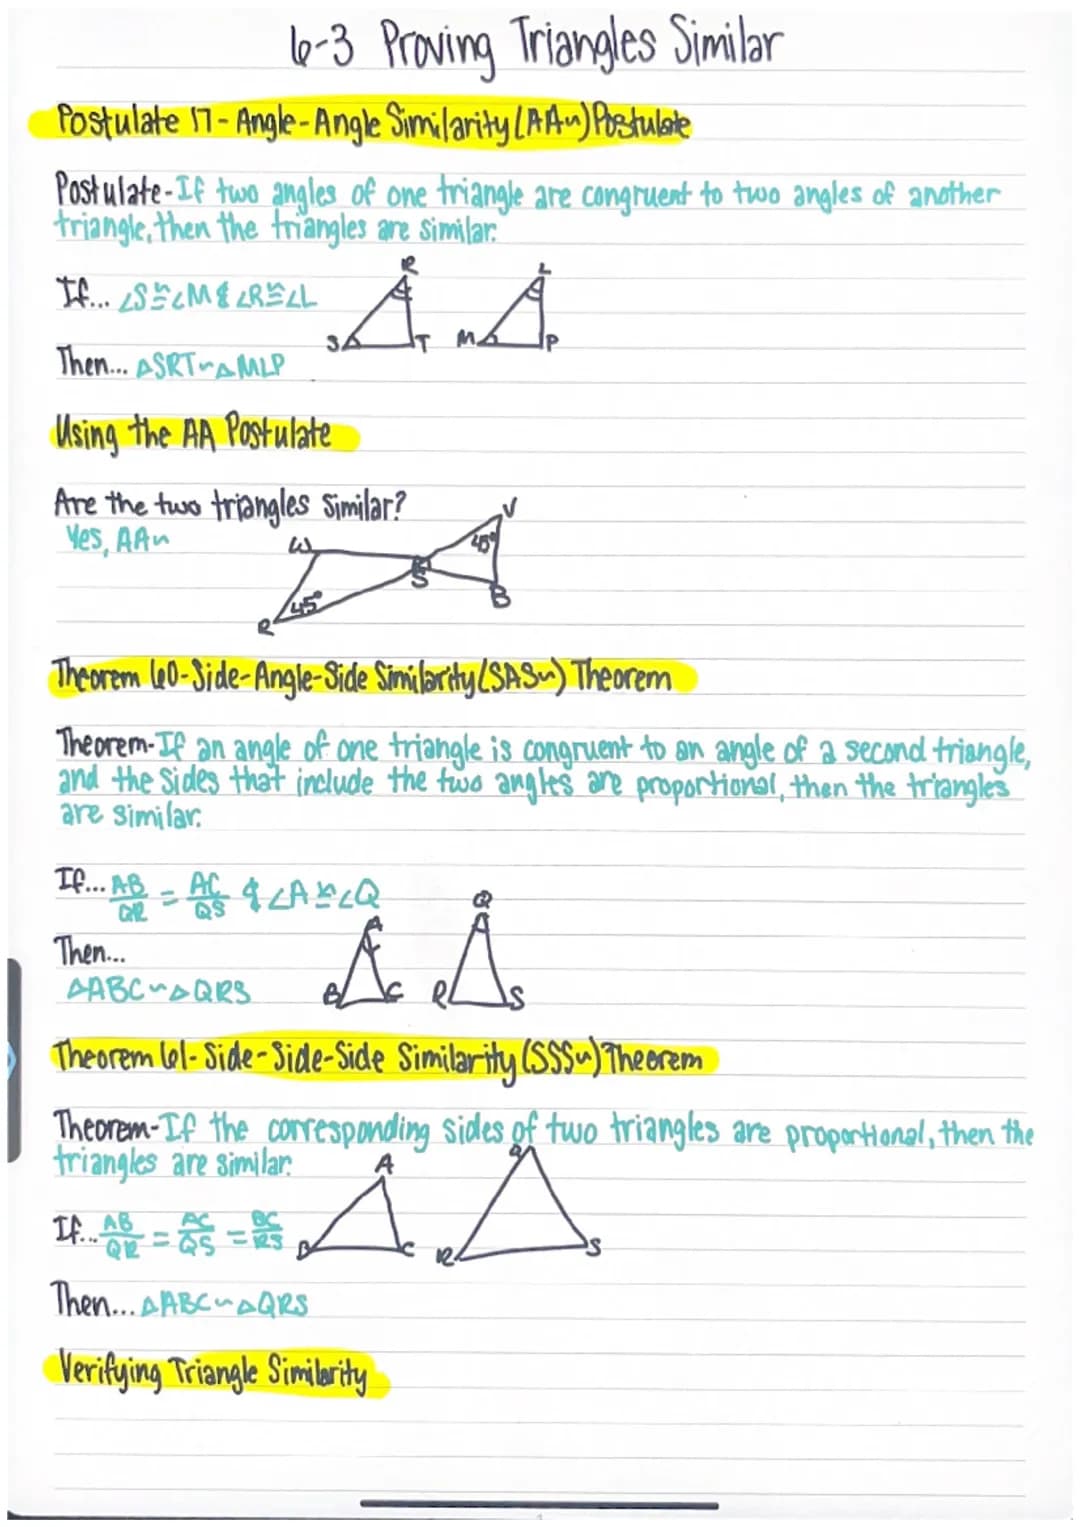 6-3 Proving Triangles Similar
Postulate 17 - Angle-Angle Similarity (AA~) Postulate
Postulate - If two angles of one triangle are congruent to two angles of another
triangle, then the triangles are similar.
If... ∠S≅∠M & ∠R≅∠L
R
L
S
T
M
P
Then... △SRT~△MLP
Using the AA Postulate
Are the two triangles similar?
Yes, AA~
V
45°
W
S
B
45°
R
Theorem 60-Side-Angle-Side Similarity (SAS~) Theorem
Theorem-If an angle of one triangle is congruent to an angle of a second triangle,
and the sides that include the two angles are proportional, then the triangles
are similar.
If... AB/QR = AC/QS & ∠A≅∠Q
Q
A
Then...
△ABC~△QRS
B
C
R
S
Theorem 61-Side-Side-Side Similarity (SSS~) Theorem
Theorem-If the corresponding sides of two triangles are proportional, then the
triangles are similar.
A
Q
If... AB/QR = AC/QS = BC/RS
B
C
R
S
Then... △ABC~△QRS
Verifying Triangle Similarity